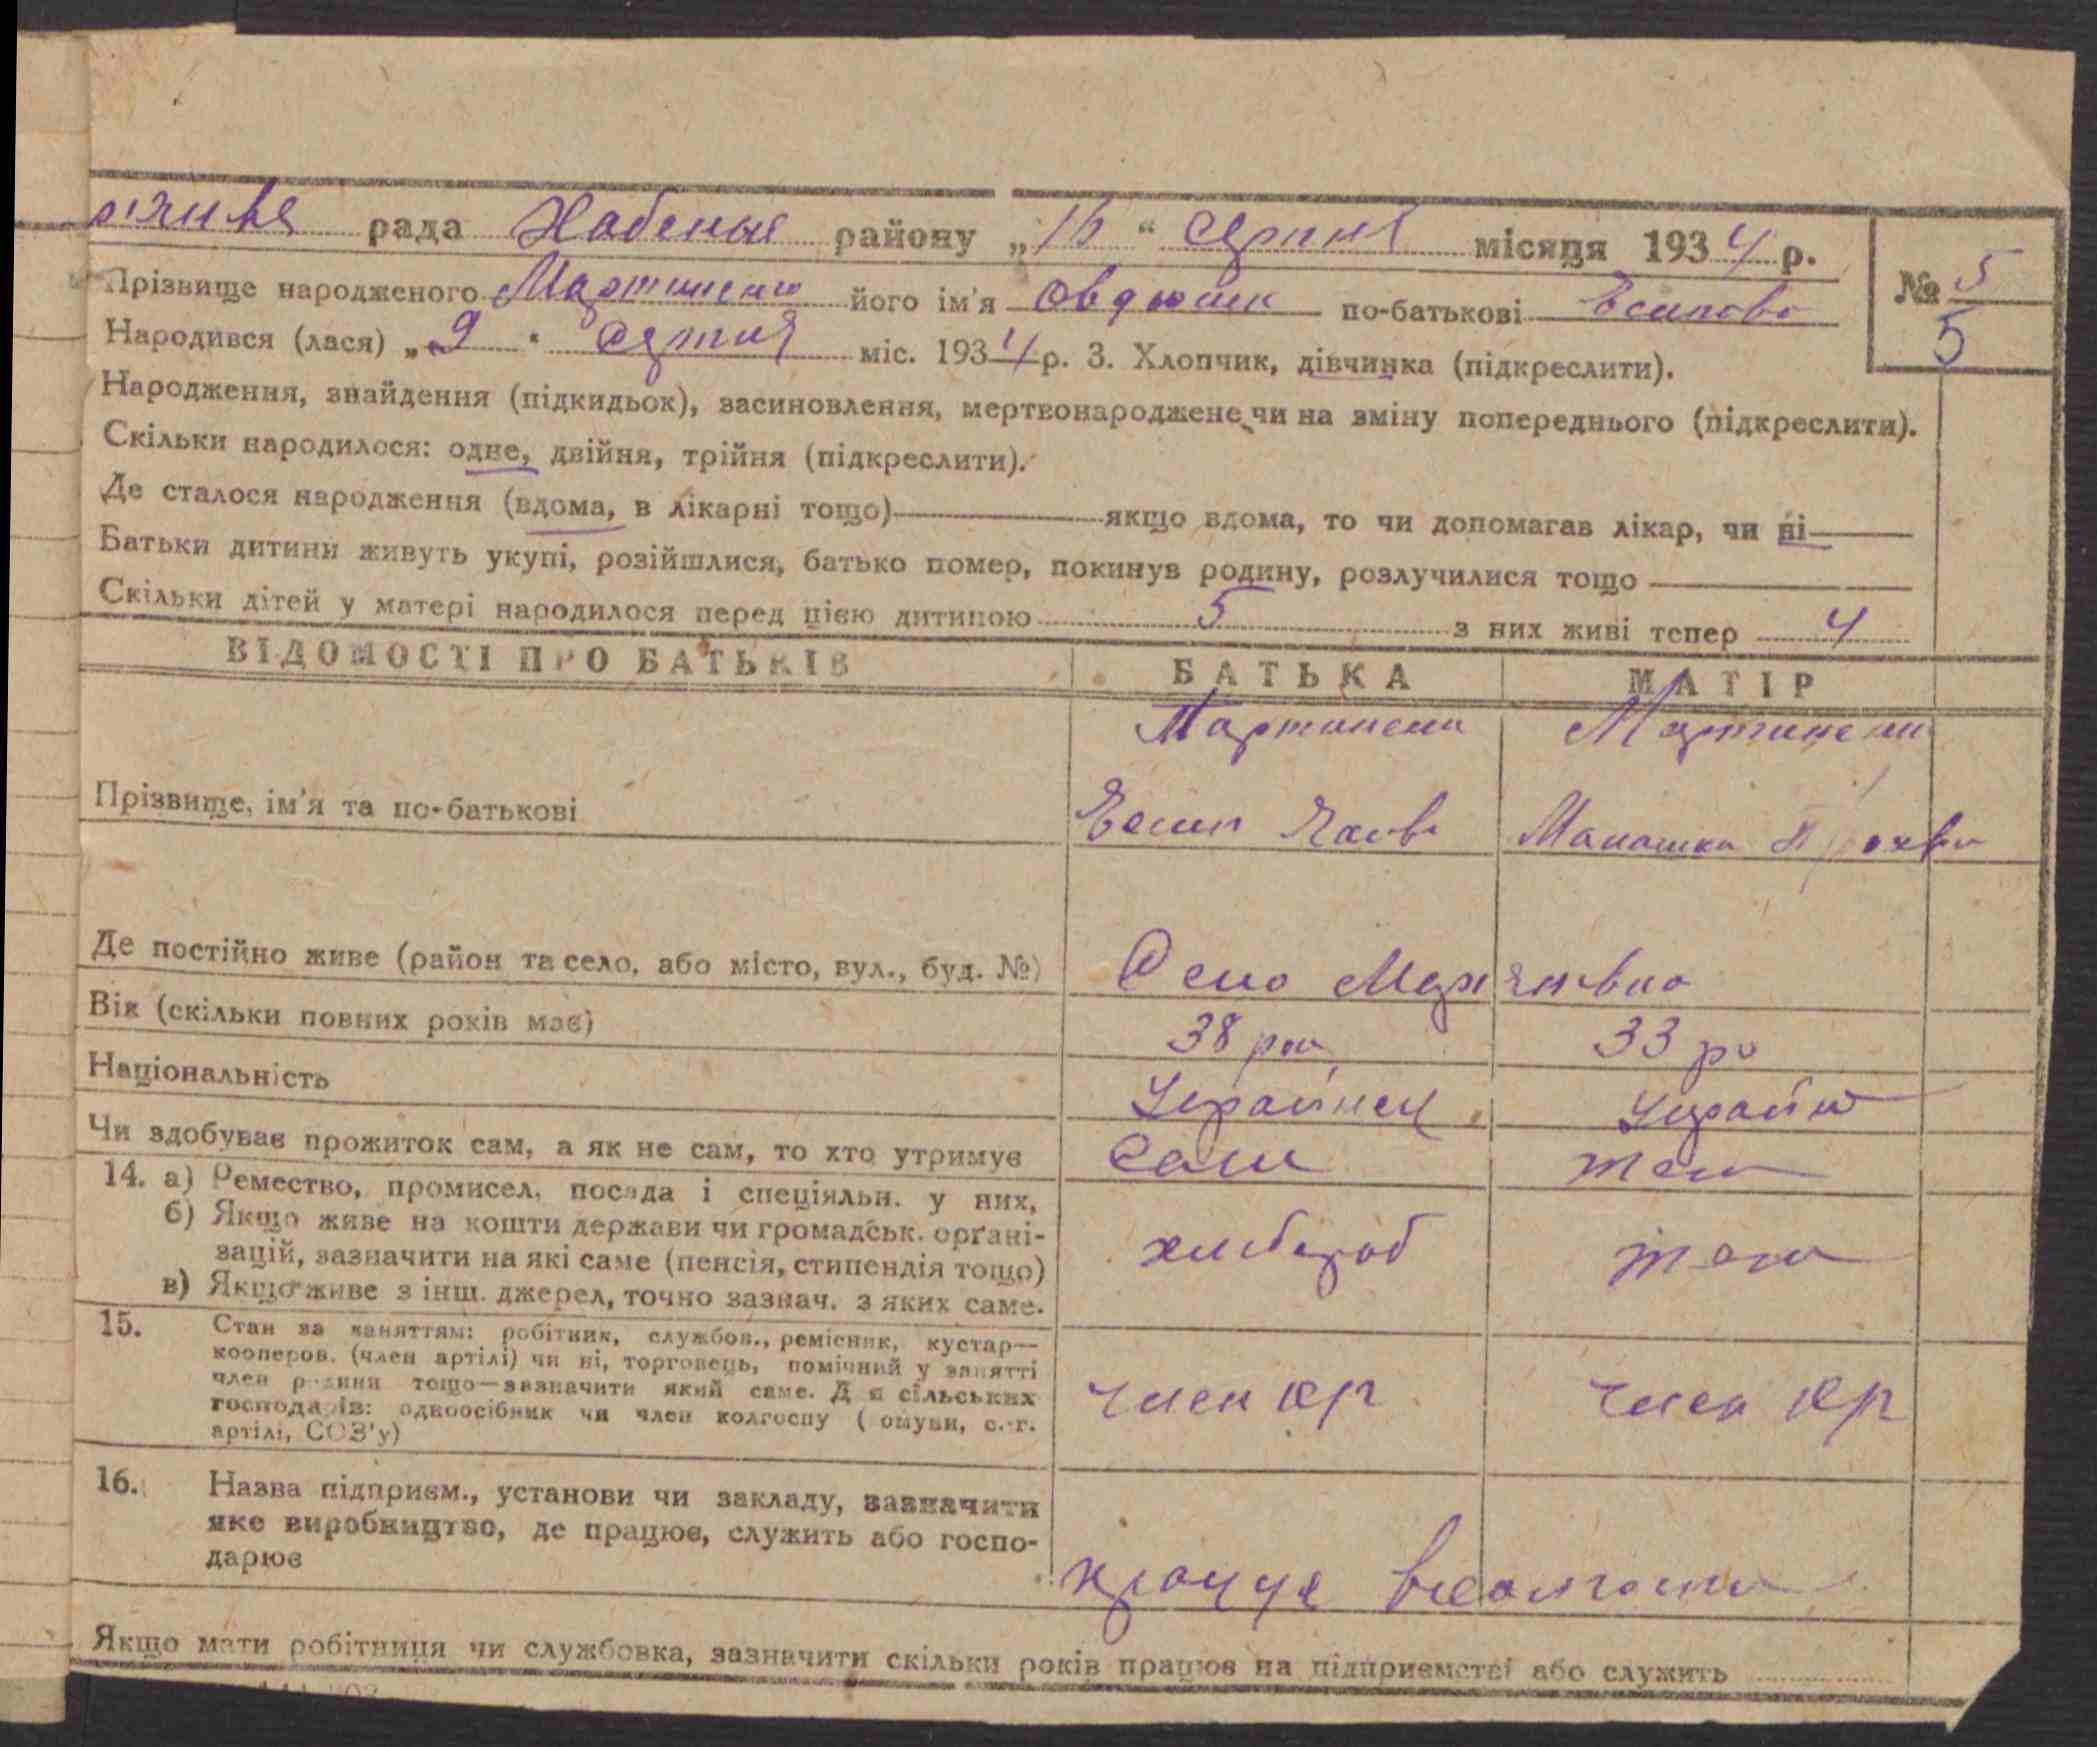 рада Хабенськ району „ 15 “ серпня місяця 1934 р.
№ 5
5
Прізвище народженого Мартиненко його ім'я Овдюшк по-батькові Есипово
Народився (лася) „ 9 “ серпня міс. 1934 р. 3. Хлопчик, дівчинка (підкреслити).
Народження, знайдення (підкидьок), засиновлення, мертвонароджене чи на зміну попереднього (підкреслити).
Скільки народилося: одне, двійня, трійня (підкреслити).
Де сталося народження (вдома, в лікарні тощо) якщо вдома, то чи допомагав лікар, чи ні
Батьки дитини живуть укупі, розійшлися, батько помер, покинув родину, розлучилися тощо
Скільки дітей у матері народилося перед цією дитиною 5 з них живі тепер 4
ВІДОМОСТІ ПРО БАТЬКІВ БАТЬКА МАТІР
Мартинени Мартинени
Прізвище, ім'я та по-батькові Есип
Де постійно живе (район та село, або місто, вул., буд. №) Село
Вік (скільки повних років має) 38 рок 33 ро
Національність Украйнец Украйн
Чи здобуває прожиток сам, а як не сам, то хто утримує Сам теж
14. а) Ремество, промисел, посада і спеціяльн. у них,
б) Якщо живе на кошти держави чи громадськ. орґані-
зацій, зазначити на які саме (пенсія, стипендія тощо) хлібороб теж
в) Якщо живе з інш. джерел, точно зазнач. з яких саме.
15. Стан за заняттям: робітник, службов., ремісник, кустар—
кооперов. (член артілі) чи ні, торговець, помічний у занятті
член родини тощо—зазначити який саме. Для сільських
господарів: одноосібник чи член колгоспу (комуни, с.-г.
артілі, СОЗ'у)
член кг член кг
16. Назва підприєм., установи чи закладу, зазначити
яке виробництво, де працює, служить або госпо-
дарює
працує вколгоспи
Якщо мати робітниця чи службовка, зазначити скільки років працює на підприємстві або служить